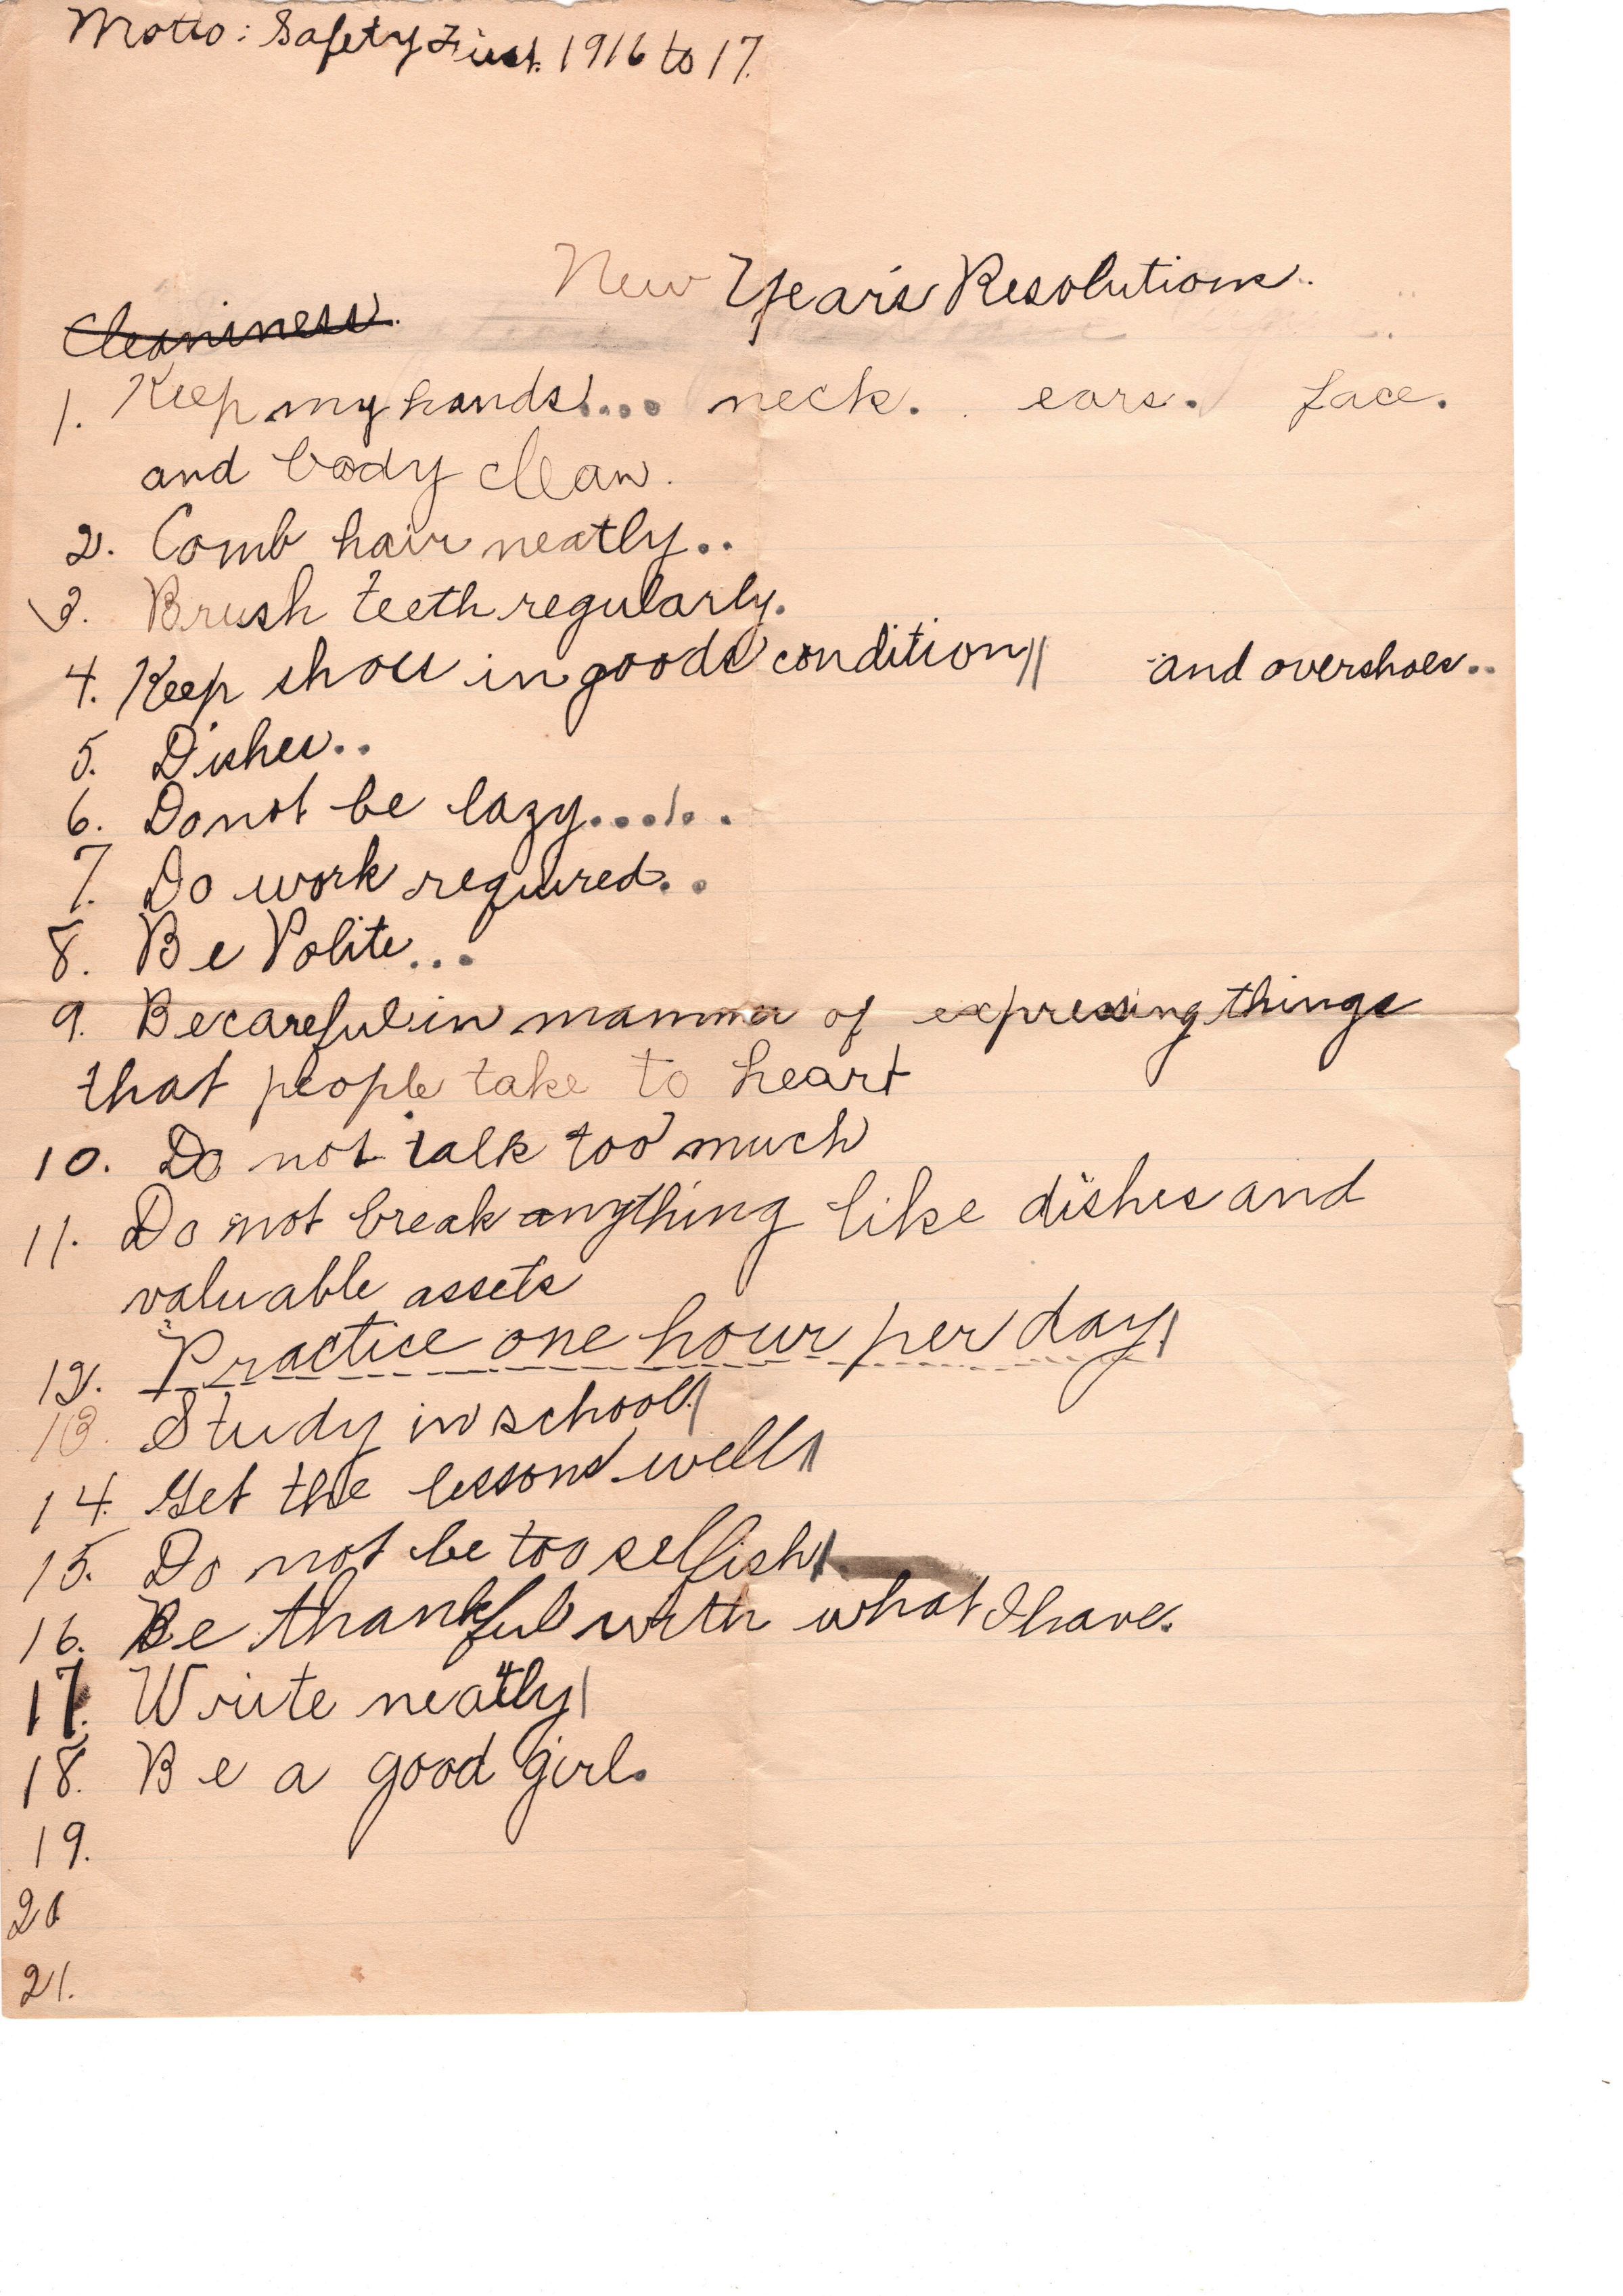 Motto: Safety First. 1916 to 17.
New Year's Resolutions.
Cleaniness.
1. Keep my hands.... neck. ears. face.
and body clean.
2. Comb hair neatly..
3. Brush teeth regularly.
4. Keep shoes in good condition and overshoes..
5. Dishes..
6. Do not be lazy......
7. Do work required..
8. Be Polite...
9. Be careful in manner of expressing things
that people take to heart
10. Do not talk too much
11. Do not break anything like dishes and
valuable assets
12. Practice one hour per day.
13. Study in school.
14. Get the lessons well
15. Do not be too selfish
16. Be thankful with what I have.
17. Write neatly
18. Be a good girl.
19.
20
21.